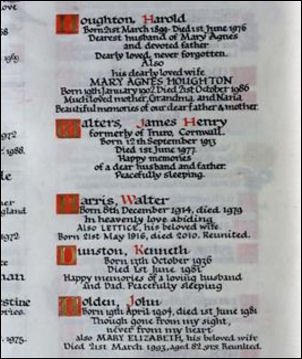 Houghton, Harold
Born 21st March 1899. Died 1st June 1976
Dearest husband of Mary Agnes
and devoted father
Dearly loved, never forgotten.
Also
his dearly loved wife
MARY AGNES HOUGHTON
Born 19th January 1902 Died 21st October 1986
Much loved mother, Grandma, and Nana
Beautiful memories of our dear father & mother.
Walters, James Henry
formerly of Truro, Cornwall.
Born 12th September 1913
Died 1st June 1977.
Happy memories
of a dear husband and father.
Peacefully sleeping.
Harris, Walter
Born 8th December 1914, died 1979
In heavenly love abiding
Also LETTICE, his beloved wife.
Born 21st May 1916, died 2010. Reunited.
Dunston, Kenneth
Born 13th October 1936
Died 1st June 1981
Happy memories of a loving husband
and Dad. Peacefully sleeping
Holden, John
Born 19th April 1904, died 1st June 1981
Though gone from my sight,
never from my heart
also MARY ELIZABETH, his beloved wife
Died 21st March 1993, aged 82 yrs. Reunited.
1972
1988.
ner
gland
1972
man
estine
ries.
1975.